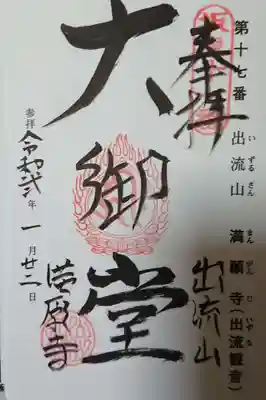 第十七番 出流山 満願寺(出流観音)
いずるさん まんがんじ いずる
奉拝
出流山
大御堂
満願寺
参拝 令和弐年 一月廿二日